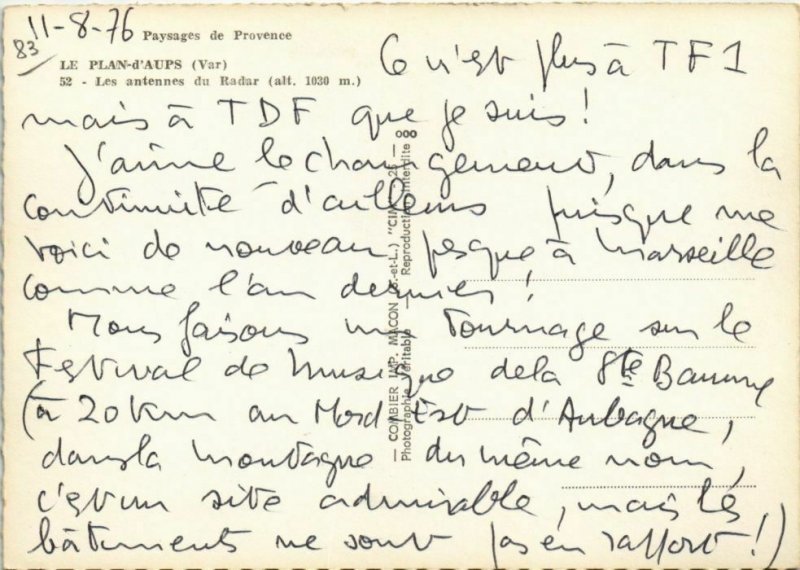 11-8-76
83
Paysages de Provence
LE PLAN-d'AUPS (Var)
52 - Les antennes du Radar (alt. 1030 m.)
Ce n'est plus à TF1
mais à TDF que je suis !
J'aime le changement, dans la
continuité d'ailleurs puisque me
voici de nouveau presque à Marseille
comme l'an dernier !
Nous faisons un tournage sur le
Festival de Musique de la Ste Baume
(à 20 km au Nord Est d'Aubagne,
dans la montagne du même nom,
c'est un site admirable, mais les
bâtiments ne sont pas en rapport !)
— COMBIER IMP. MACON (S.-et-L.) "CIM"
Photographie Véritable — Reproduction Interdite